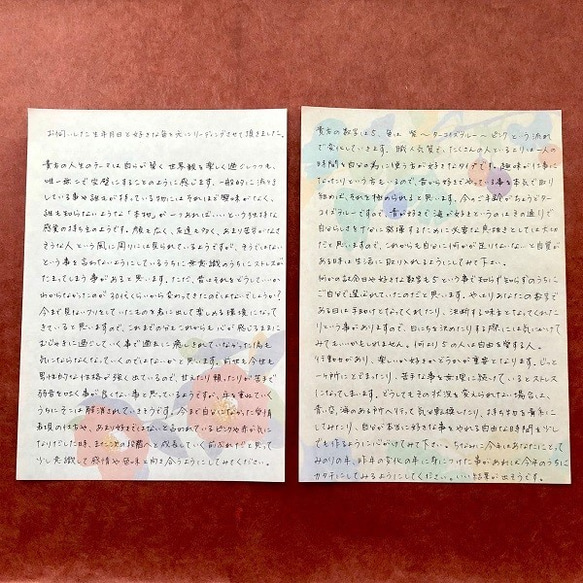 お伺いした生年月日と好きな色を元にリーディングさせて頂きました。
貴方の人生のテーマは自らが築く世界観を楽しく過ごしつつも、
唯一無二で完璧にすることのように感じます。一般的に流行
している事や誰もが持っている物にはそれほど興味がなく、
誰も知らないような「本物」が一つあればいいという独特な
感覚の持ち主のようです。顔も広く、友達も多く、あまり苦労がなさ
そうな人という風に周りには見られているようですが、そうではない
という事を言わないようにしているうちに無意識のうちにストレスが
たまってしまう事があると思います。ただ、昔はそれをどうしていいか
わからなかったのが30代くらいから変わってきたのではないでしょうか？
今まで見ないフリをしていたものを表に出して楽しめる環境になって
きていると思いますので、これまでのがとこれからも心が感じるままに
むじゃきに過ごしていく事で過去に癒しきれていなかった傷も
気にならなくなっていくのではないかと思います。前世も今世も
男性的な性格が強く出ているので、甘えたり頼ったりが苦手で
弱音をはく事が良くない事と思っているようですが、年を重ねていく
うちにそこは解消されていきそうです。今まで自分になかった愛情
表現の仕方や、あまり好きではないと言われているピンクや赤が気に
なりだした時、また次の段階へと成長していく前ぶれだと思って
少し意識して感情や趣味と向き合うようにしてみてください。
貴方の数字は5、色は 紫〜ターコイズブルー〜ピンク という流れ
で変化していきます。職人気質で、たくさんの人といるよりは一人の
時間を自分の為に使う方が好きなタイプです。趣味が仕事に
なったりという方もいるので、昔から好きでやっている事を本気で取り
組めば、それを極められると思います。今のご年齢がちょうどター
コイズブルーですので、青が好きで海が好きというのはその通りで
自分らしさをかなり発揮するために必要な息抜きとしては大切
だと思いますので、これからも自分に何かが足りないなと自覚が
ある日は生活に取り入れるようにしてみて下さい。
何かの記念日や好きな数字も5という事で知らず知らずのうちに
ご自分で選ばれていたのだと思います。やはりあなたの数字で
ある日は手助けとなってくれたり、決断する味方となってくれた
りという事がありますので、日にちを決めたりする際には気にかけて
みてもいいかもしれません。何より5の人は自由を愛する人。
行動力があり、楽しいか好きかどうかが重要となります。じっと
一ヶ所にとどまったり、苦手な事を無理に続けているとストレス
になってしまいます。どうしてもその状況を変えられない場合は、
青い空、海のある所へ行って気分転換したり、持ち物を青系に
してみたり、自分が本当に好きな事をやれる自由な時間を少し
でも作るように心がけてみて下さい。ちなみに今年はあなたにとって
みのりの年、昨年の変化の年に身につけた事があれば今年のうちに
カタチにしてみるようにしてください。いい結果が出そうです。